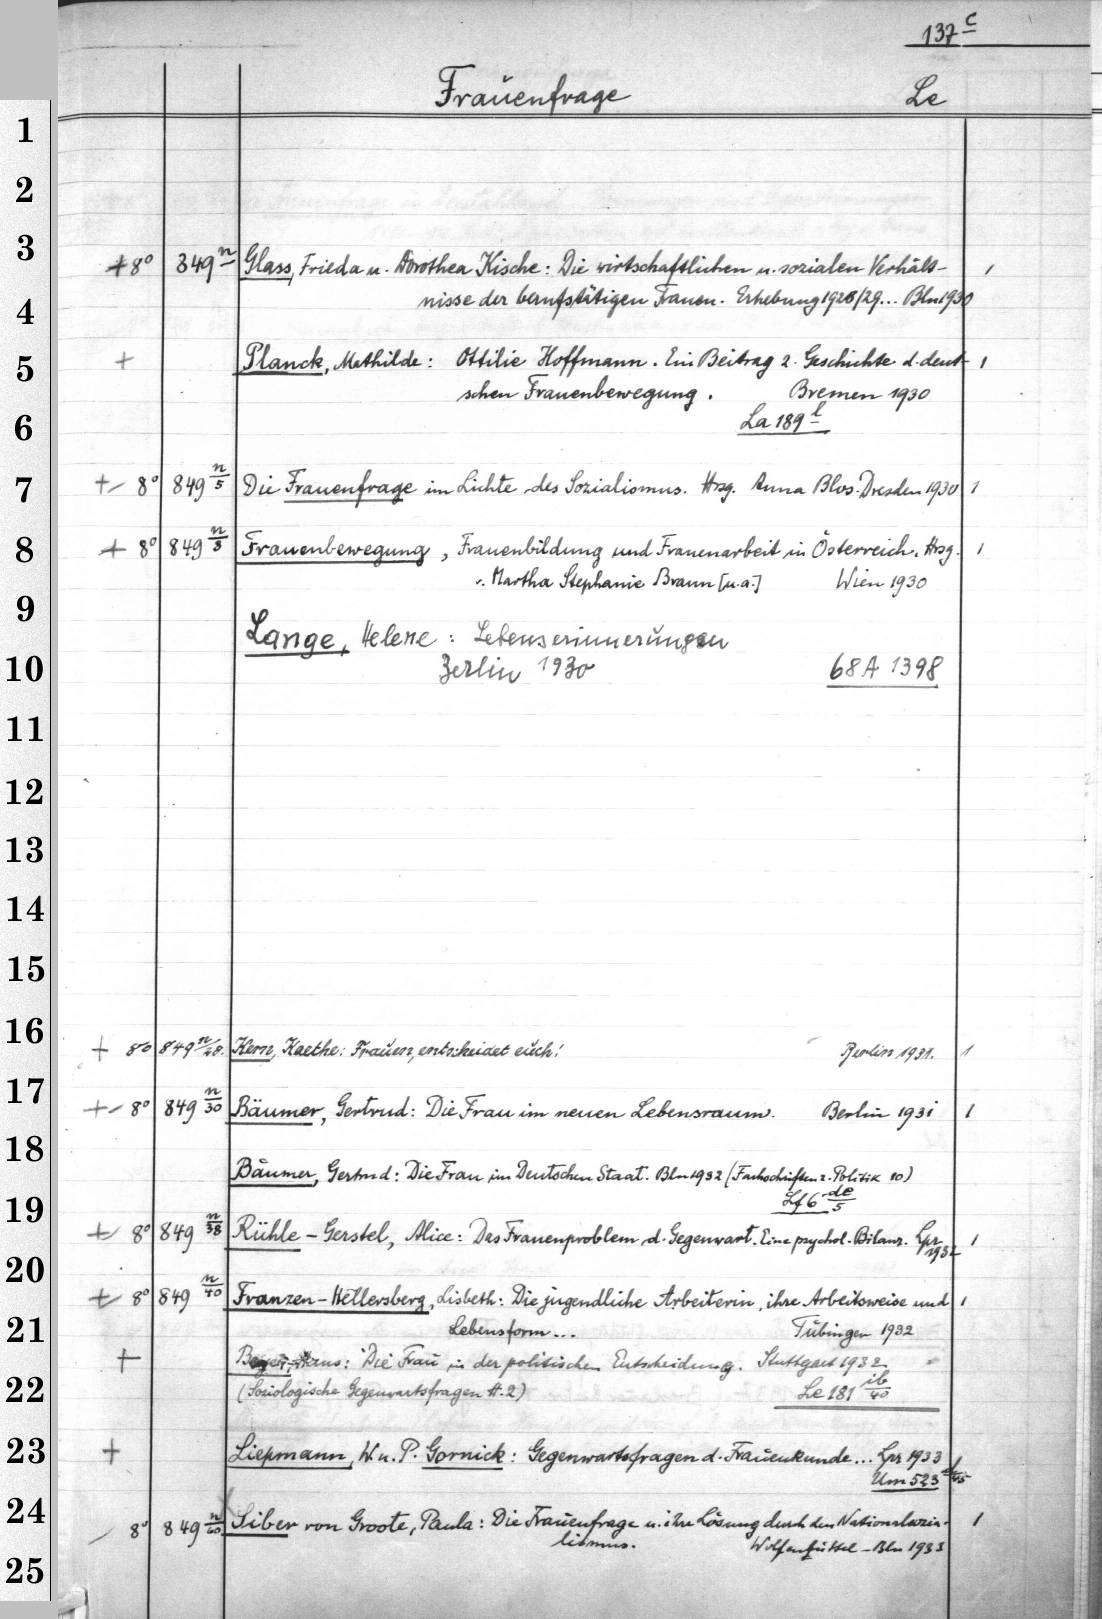 137 c
Frauenfrage Le
1
2
3
+ 8° 849 n Glass, Frieda u. Dorothea Kische: Die wirtschaftlichen u. sozialen Verhält-
nisse der berufstätigen Frauen. Erhebung 1928/29... Bln 1930
4
5
+ Planck, Mathilde: Ottilie Hoffmann. Ein Beitrag z. Geschichte d. deut-
schen Frauenbewegung. Bremen 1930
6
La 189 l
7
+ 8° 849 n/5 Die Frauenfrage im Lichte des Sozialismus. Hrsg. Anna Blos. Dresden 1930
8
+ 8° 849 n/8 Frauenbewegung, Frauenbildung und Frauenarbeit in Österreich. Hrsg.
v. Martha Stephanie Braun [u.a.] Wien 1930
9
Lange, Helene: Lebenserinnerungen
10
Berlin 1930 68 A 1398
11
12
13
14
15
16
+ 8° 849 n/28 Kern, Kaethe: Frauen, entscheidet euch! Berlin 1931.
17
+ 8° 849 n/30 Bäumer, Gertrud: Die Frau im neuen Lebensraum. Berlin 1931
18
Bäumer, Gertrud: Die Frau im Deutschen Staat. Bln 1932 (Fachschriften z. Politik 10)
19
Lf 6 de/5
+ 8° 849 n/38 Rühle-Gerstel, Alice: Das Frauenproblem d. Gegenwart. Eine psychol. Bilanz. Lpz 1932
20
+ 8° 849 n/40 Franzen-Hellersberg, Lisbeth: Die jugendliche Arbeiterin, ihre Arbeitsweise und
21
Lebensform... Tübingen 1932
+ Beyer, Hans: Die Frau in der politischen Entscheidung. Stuttgart 1932
22
(Soziologische Gegenwartsfragen H.2) Le 181 ib/40
23
+ Liepmann, W. u. P. Gornick: Gegenwartsfragen d. Frauenkunde... Lpz 1933
Um 523
24
8° 849 n/60 Siber von Groote, Paula: Die Frauenfrage u. ihre Lösung durch den Nationalsozia-
lismus. Wolfenbüttel - Bln 1933
25